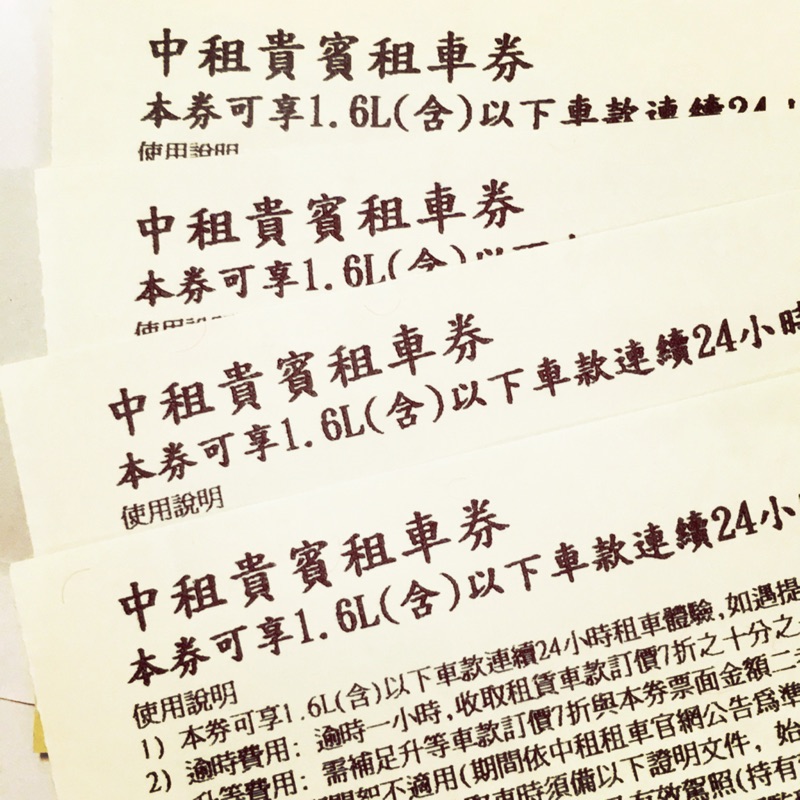 中租貴賓租車券
本券可享1.6L(含)以下車款連續24
使用說明
中租貴賓租車券
本券可享1.6L(含)以
使用說明
中租貴賓租車券
本券可享1.6L(含)以下車款連續24小時
使用說明
中租貴賓租車券
本券可享1.6L(含)以下車款連續24小
使用說明
1) 本券可享1.6L(含)以下車款連續24小時租車體驗,如遇提
2) 逾時費用: 逾時一小時,收取租賃車款訂價7折之十分之
升等費用: 需補足升等車款訂價7折與本券票面金額二
間恕不適用(期間依中租租車官網公告為準
車時須備以下證明文件, 始
有效駕照(持有